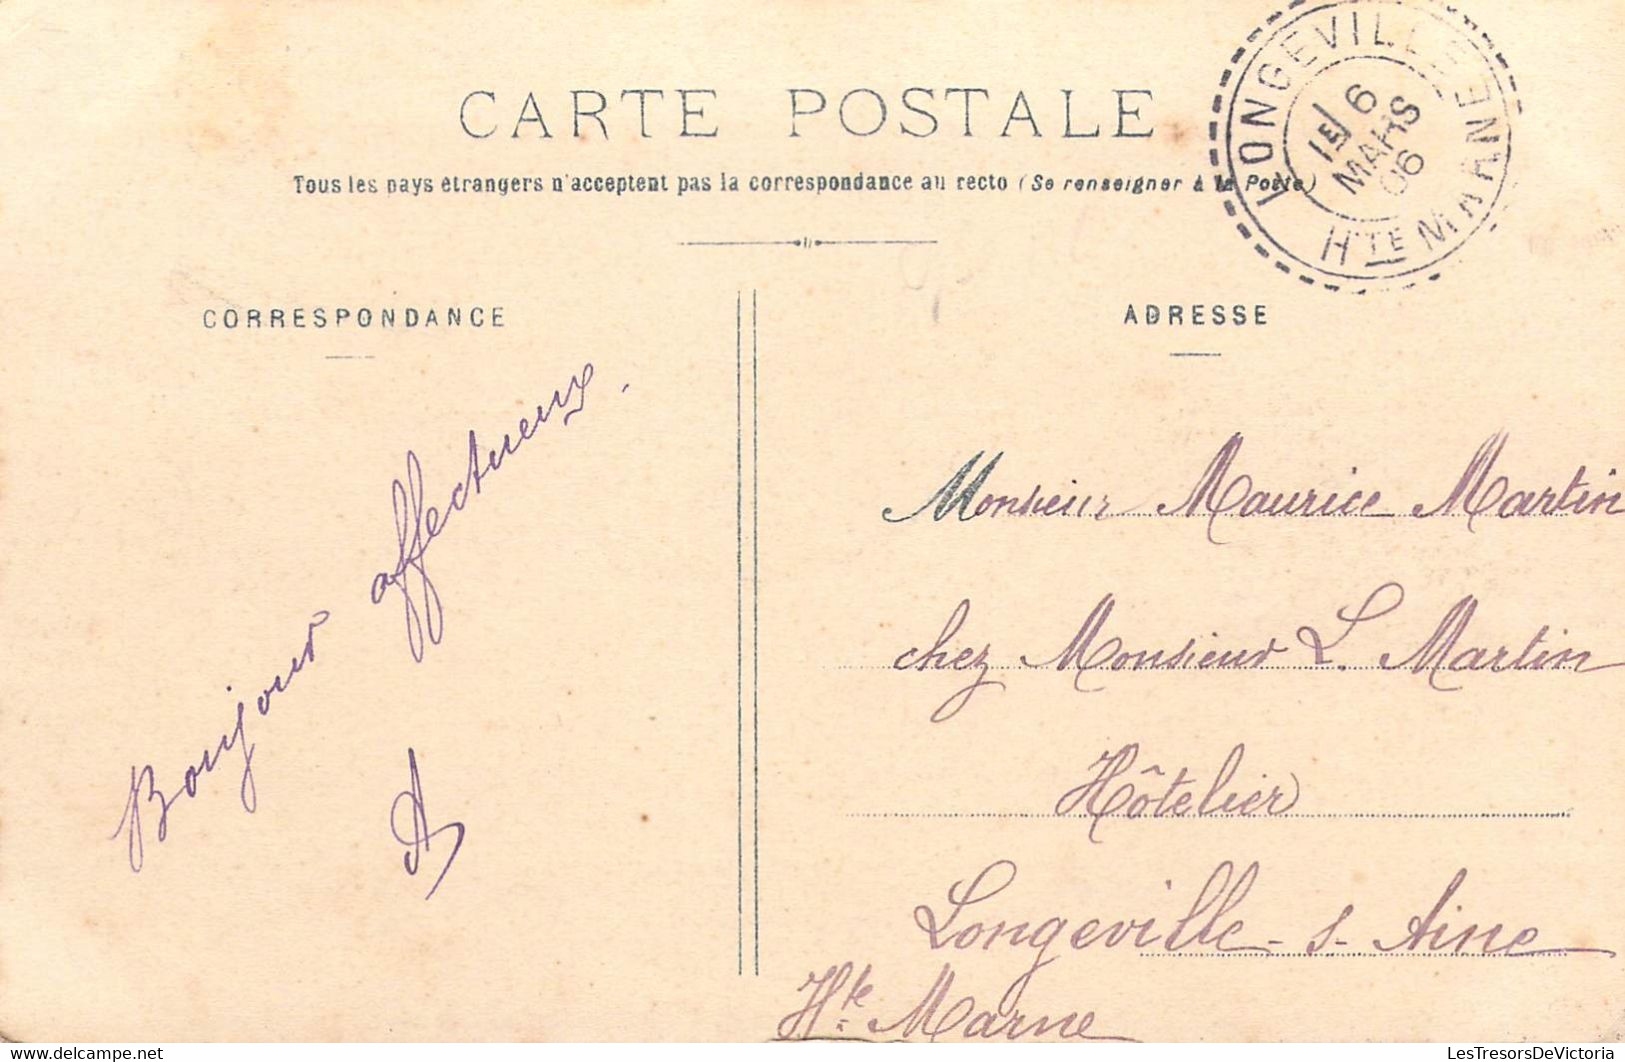 CARTE POSTALE
Tous les pays étrangers n'acceptent pas la correspondance au recto (Se renseigner à la Poste)
LONGEVILLE
Hte MARNE
1E 6
MARS
06
CORRESPONDANCE
Bonjour affectueux.
A
ADRESSE
Monsieur Maurice Martin
chez Monsieur L. Martin
Hôtelier
Longeville-s-Aine
Hte Marne
LesTresorsDeVictoria